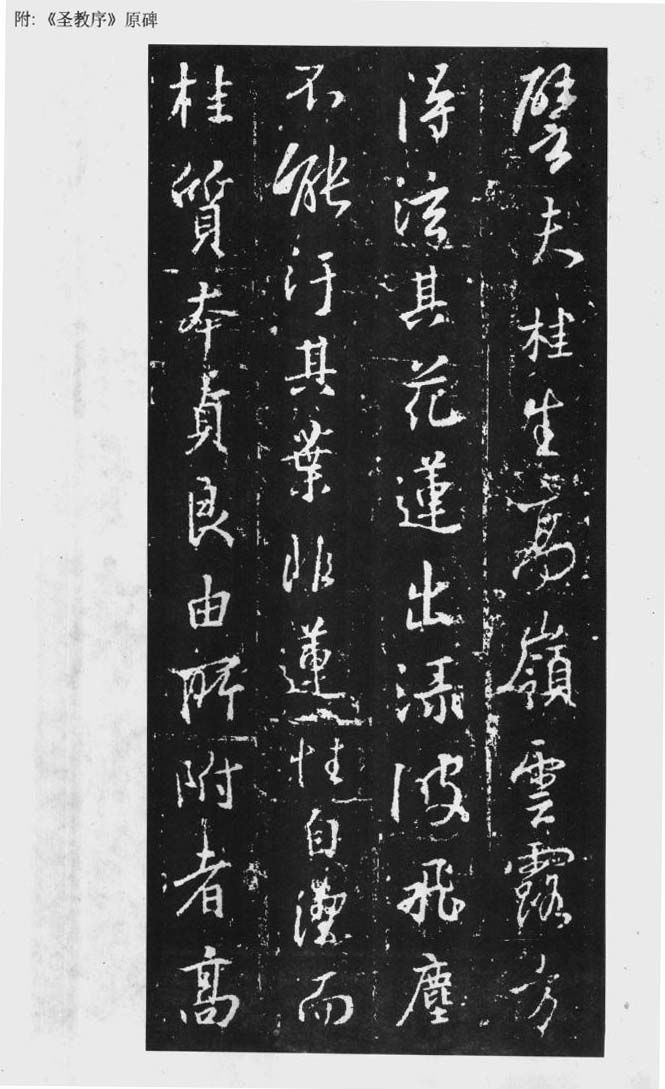 附:《圣教序》原碑
譬夫桂生高嶺雲露方
得泫其花蓮出淥波飛塵
不能汙其葉非蓮性自潔而
桂質本貞良由所附者高